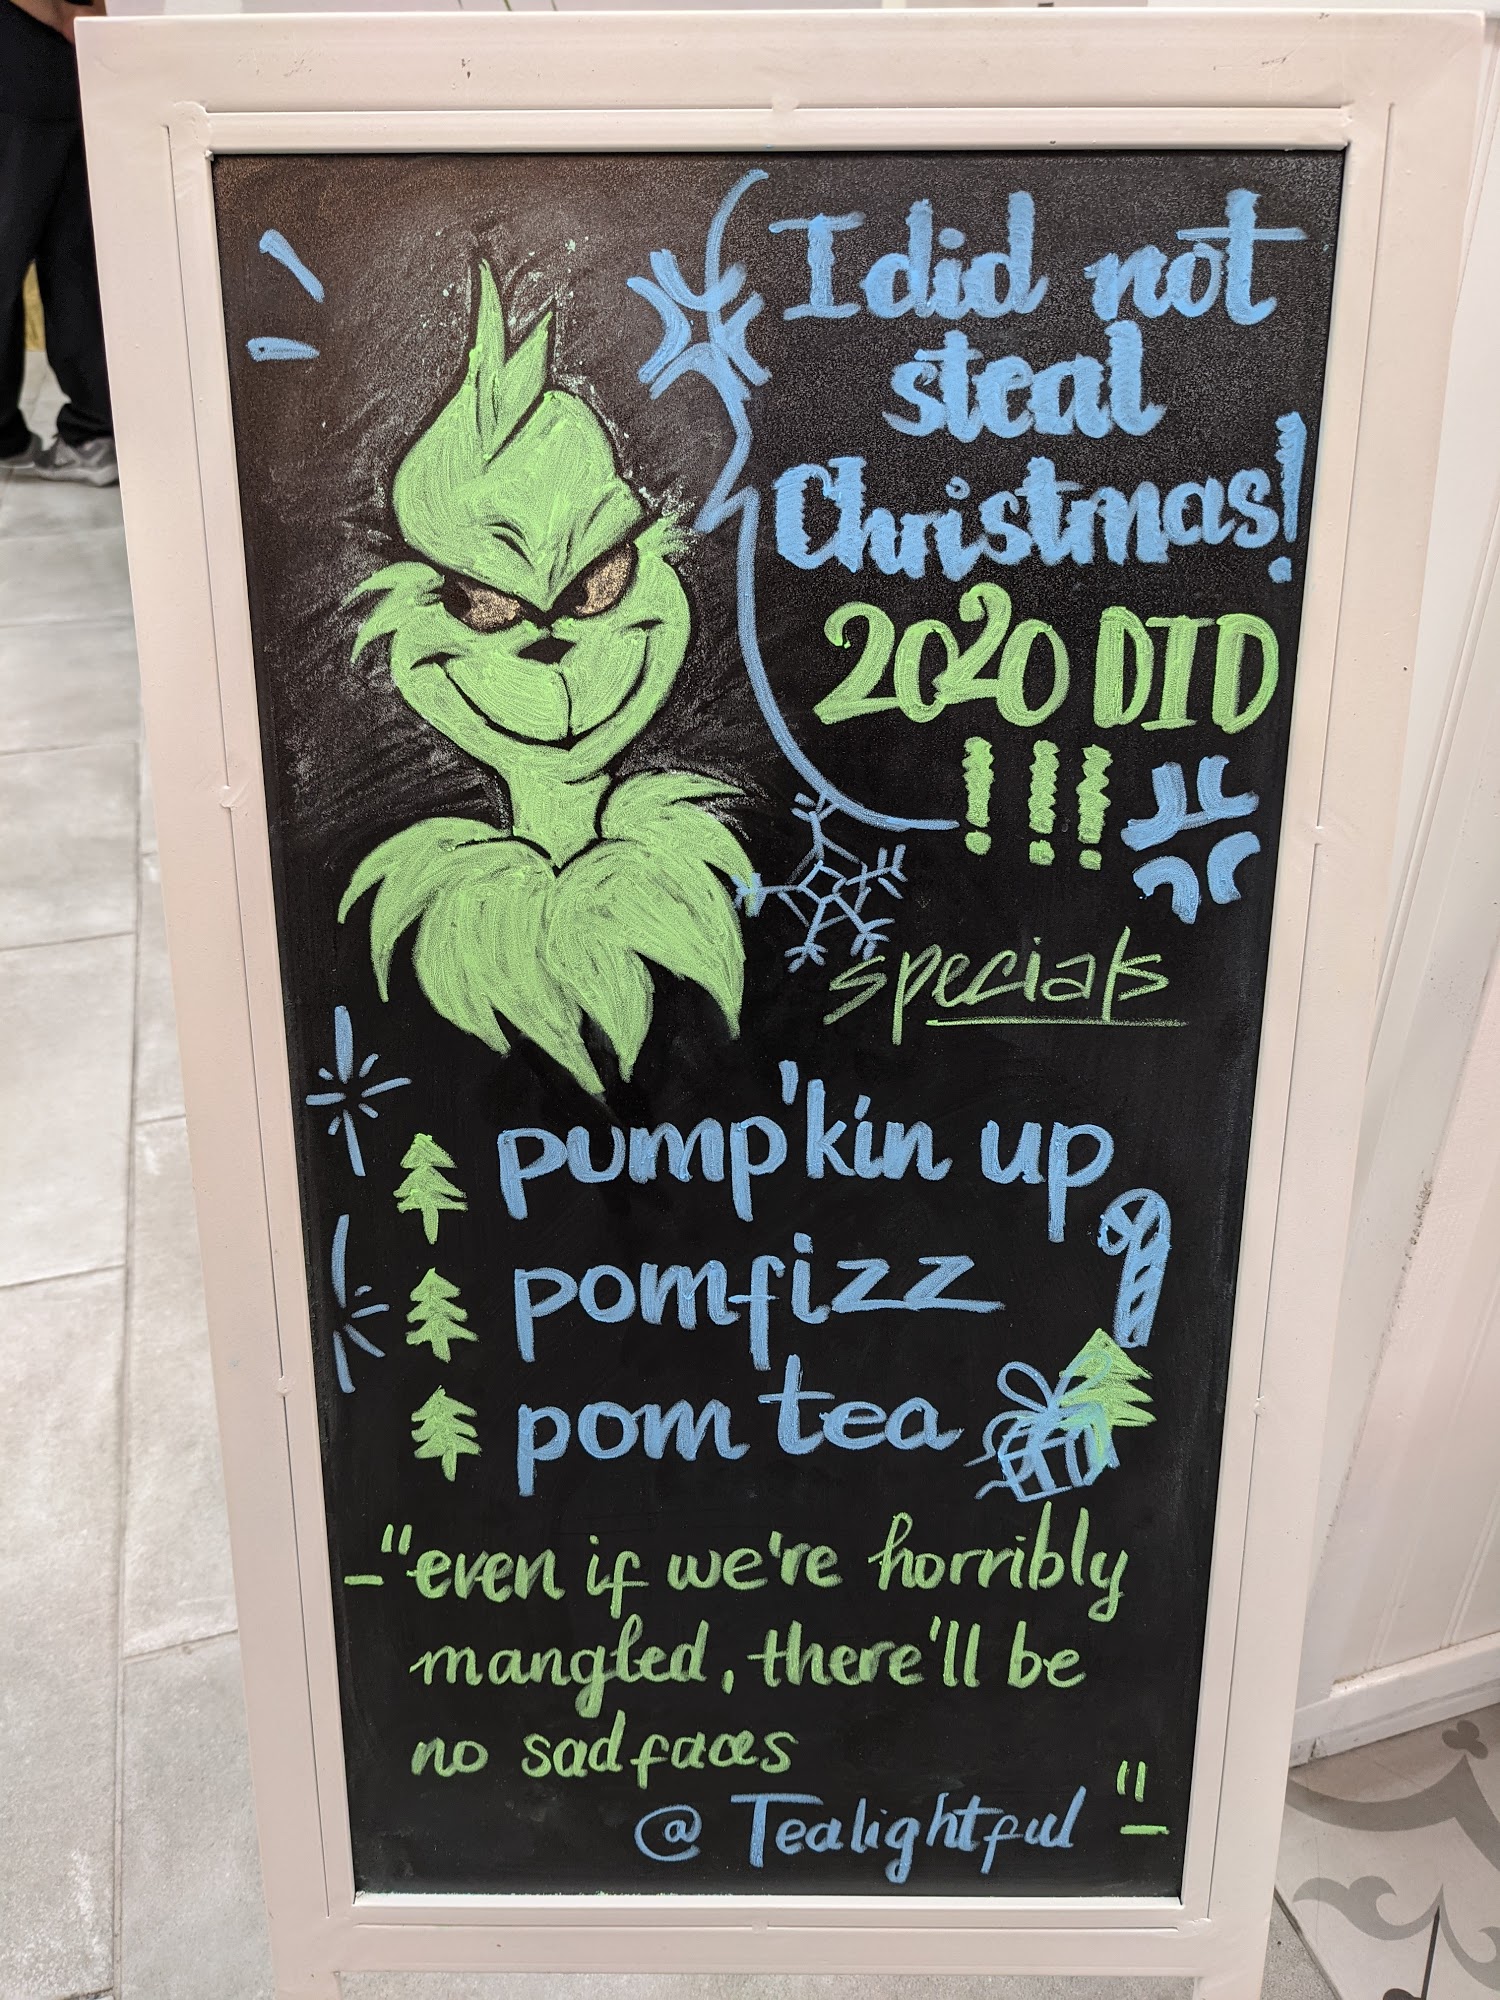 I did not
steal
Christmas!
2020 DID
!!!
specials
pump'kin up
pomfizz
pom tea
-"even if we're horribly
mangled, there'll be
no sad faces
@ Tealightful "-